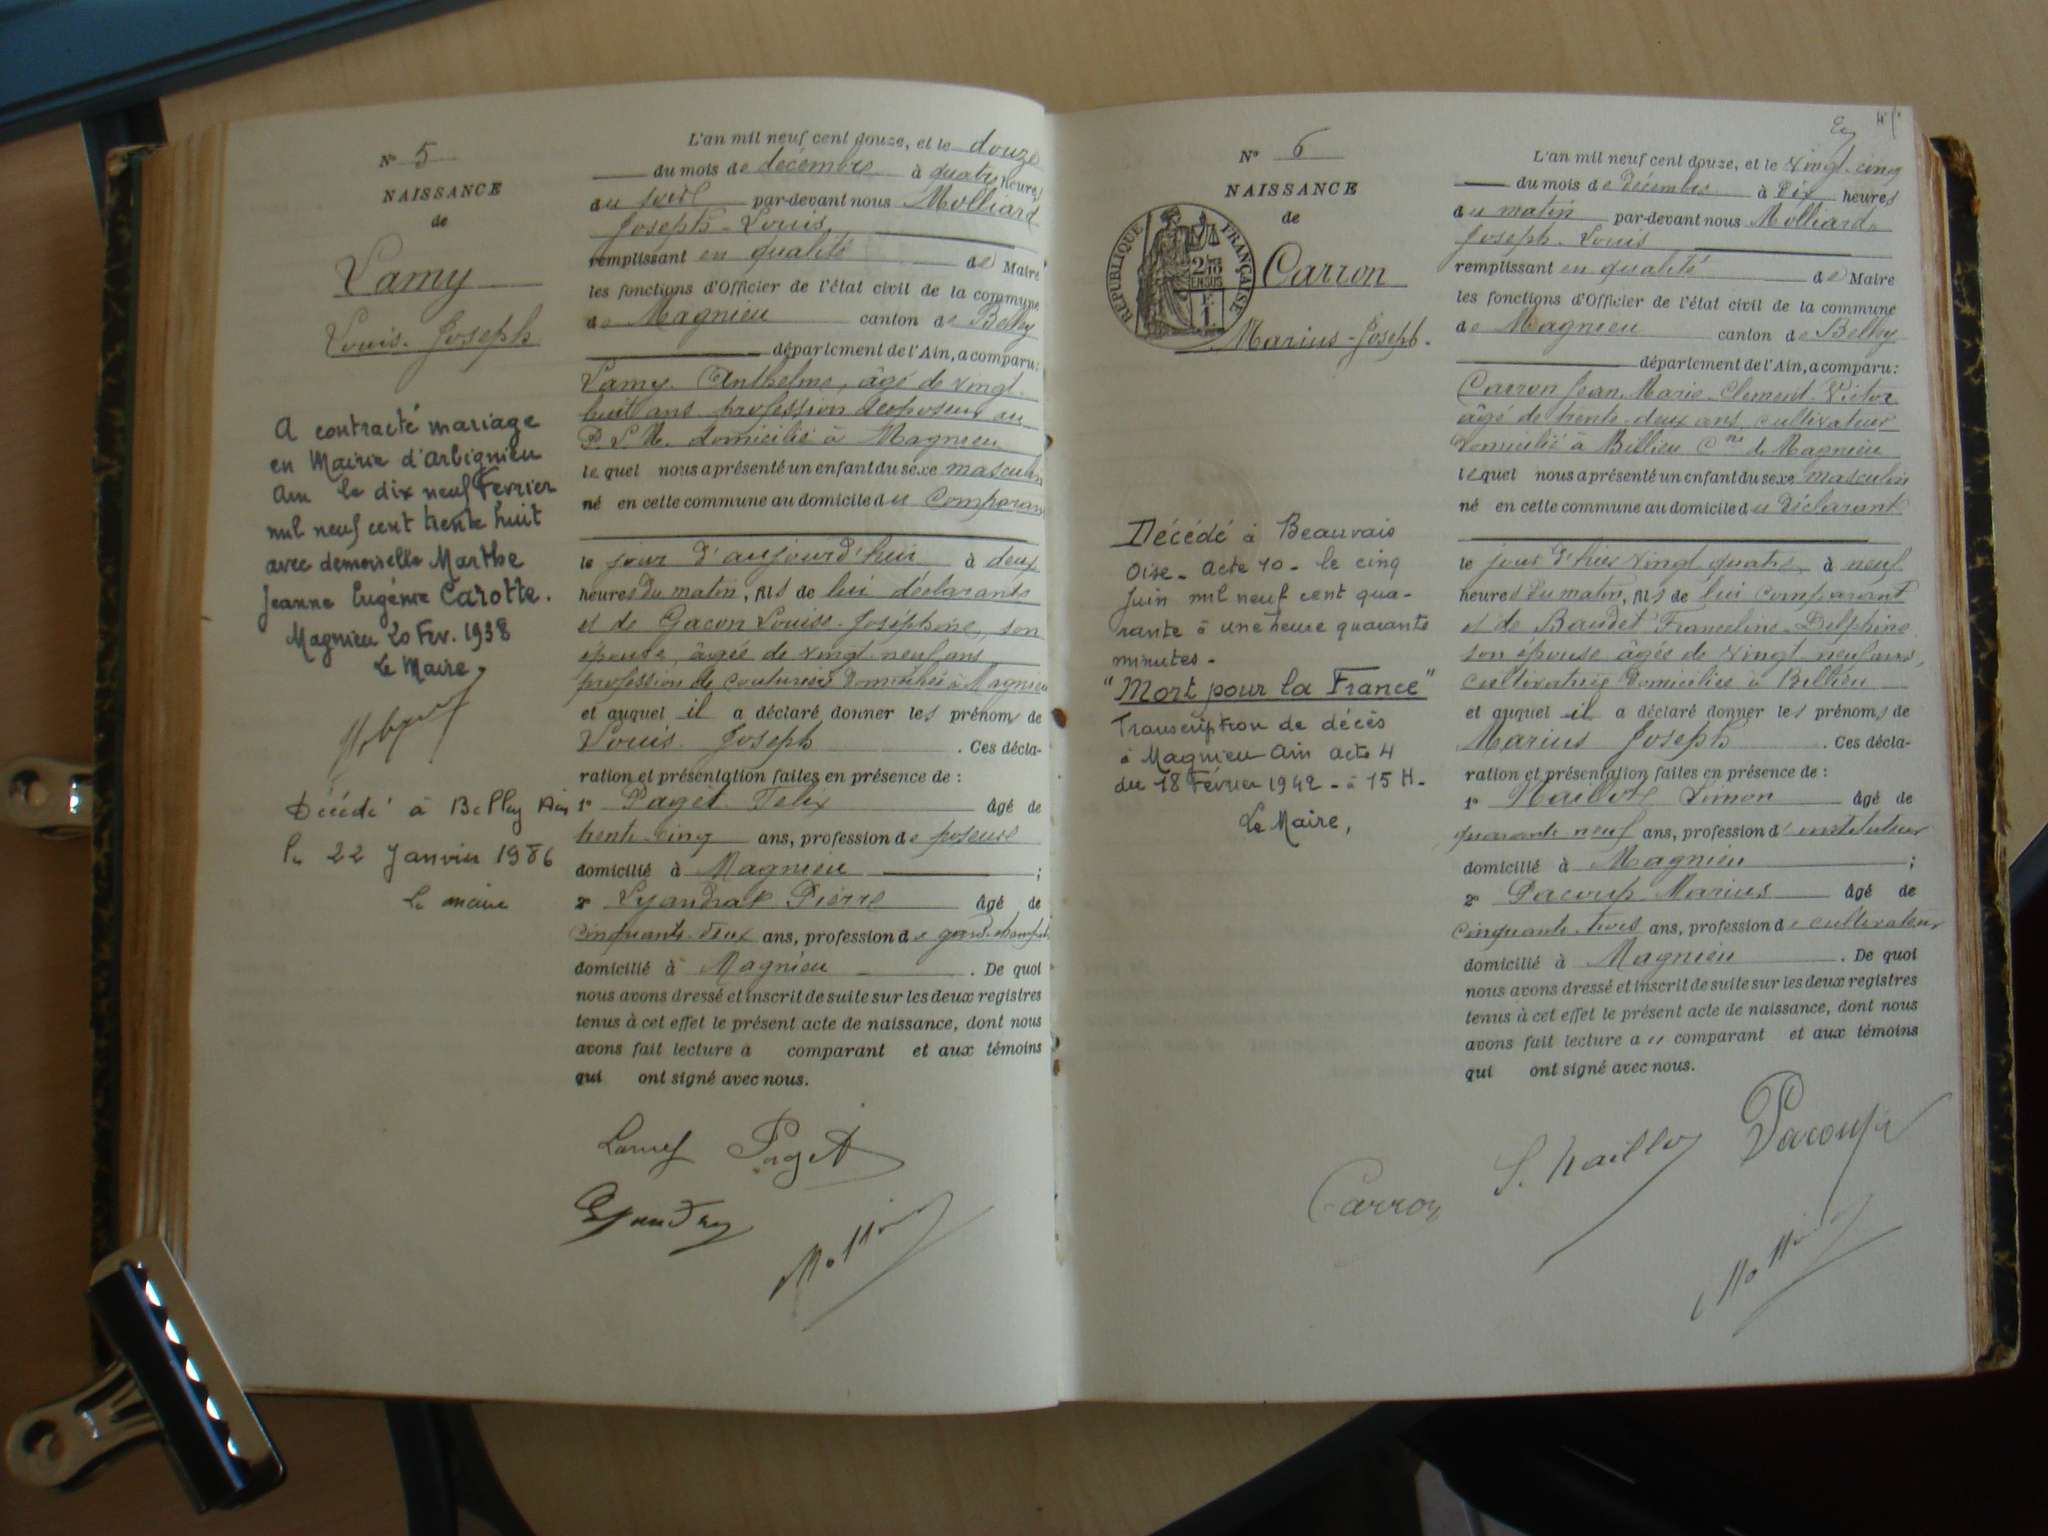 N° 5
NAISSANCE
de
Lamy
Louis-Joseph
A contracté mariage
en Mairie d'Arbignieu
Ain le dix neuf Fevrier
mil neuf cent trente huit
avec demoiselle Marthe
Jeanne Eugénie Carotte.
Magnieu 20 Fev. 1938
Le Maire,
Décédé à Belley Ain
le 22 Janvier 1986
Le maire
L'an mil neuf cent douze, et le douze
du mois de décembre à quatre heures
du soir par-devant nous Molliard
Joseph-Louis
remplissant en qualité de Maire
les fonctions d'Officier de l'état civil de la commune
de Magnieu canton de Belley
département de l'Ain, a comparu:
Lamy Anthelme, âgé de vingt
huit ans profession de poseur au
P.L.M. domicilié à Magnieu
lequel nous a présenté un enfant du sexe masculin
né en cette commune au domicile du Comparant
le jour d'aujourd'hui à deux
heures du matin, fils de lui déclarant
et de Gacon Louise-Joséphine, son
épouse, âgée de vingt neuf ans
profession de couturière domiciliée à Magnieu
et auquel il a déclaré donner les prénoms de
Louis Joseph. Ces décla-
ration et présentation faites en présence de :
1° Paget Felix âgé de
trente-cinq ans, profession de poseur
domicilié à Magnieu ;
2° Lyandrat Pierre âgé de
cinquante-deux ans, profession de garde-champêtre
domicilié à Magnieu. De quoi
nous avons dressé et inscrit de suite sur les deux registres
tenus à cet effet le présent acte de naissance, dont nous
avons fait lecture a comparant et aux témoins
qui ont signé avec nous.
Lamy Paget
N° 6
NAISSANCE
de
RÉPUBLIQUE FRANÇAISE
2/10 EN SUS
Carron
Marius-Joseph.
Décédé à Beauvais
Oise - Acte 70 - le cinq
Juin mil neuf cent qua-
rante à une heure quarante
minutes -
"Mort pour la France"
Transcription de décès
à Magnieu Ain acte 4
du 18 Février 1942 - à 15 H -
Le Maire,
L'an mil neuf cent douze, et le vingt-cinq
du mois de Décembre à Dix heures
du matin par-devant nous Molliard
Joseph-Louis
remplissant en qualité de Maire
les fonctions d'Officier de l'état civil de la commune
de Magnieu canton de Belley
département de l'Ain, a comparu:
Carron Jean-Marie-Clement-Victor
âgé de trente-deux ans, cultivateur
domicilié à Billieu Cne de Magnieu
lequel nous a présenté un enfant du sexe masculin
né en cette commune au domicile du Déclarant
le jour d'hier vingt quatre à neuf
heures du matin, fils de lui comparant
et de Baudet Franceline-Delphine
son épouse âgée de vingt neuf ans,
cultivatrice domiciliée à Billieu
et auquel il a déclaré donner les prénoms de
Marius Joseph. Ces décla-
ration et présentation faites en présence de :
1° Naillot Simon âgé de
quarante neuf ans, profession d'instituteur
domicilié à Magnieu ;
2° Pacoup Marius âgé de
cinquante-trois ans, profession de cultivateur
domicilié à Magnieu. De quoi
nous avons dressé et inscrit de suite sur les deux registres
tenus à cet effet le présent acte de naissance, dont nous
avons fait lecture au comparant et aux témoins
qui ont signé avec nous.
Carron S. Naillot Pacoup